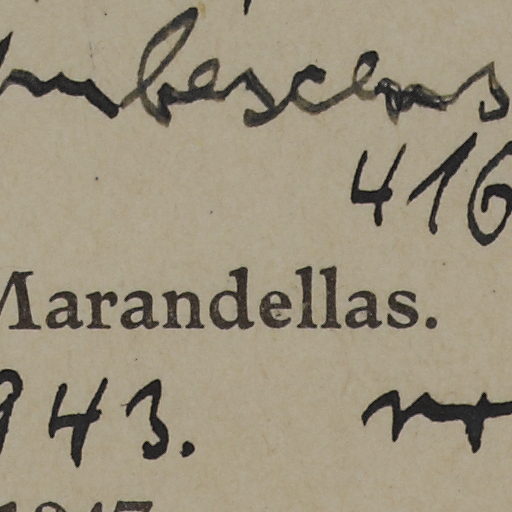 pubescens
416
Marandellas.
943.